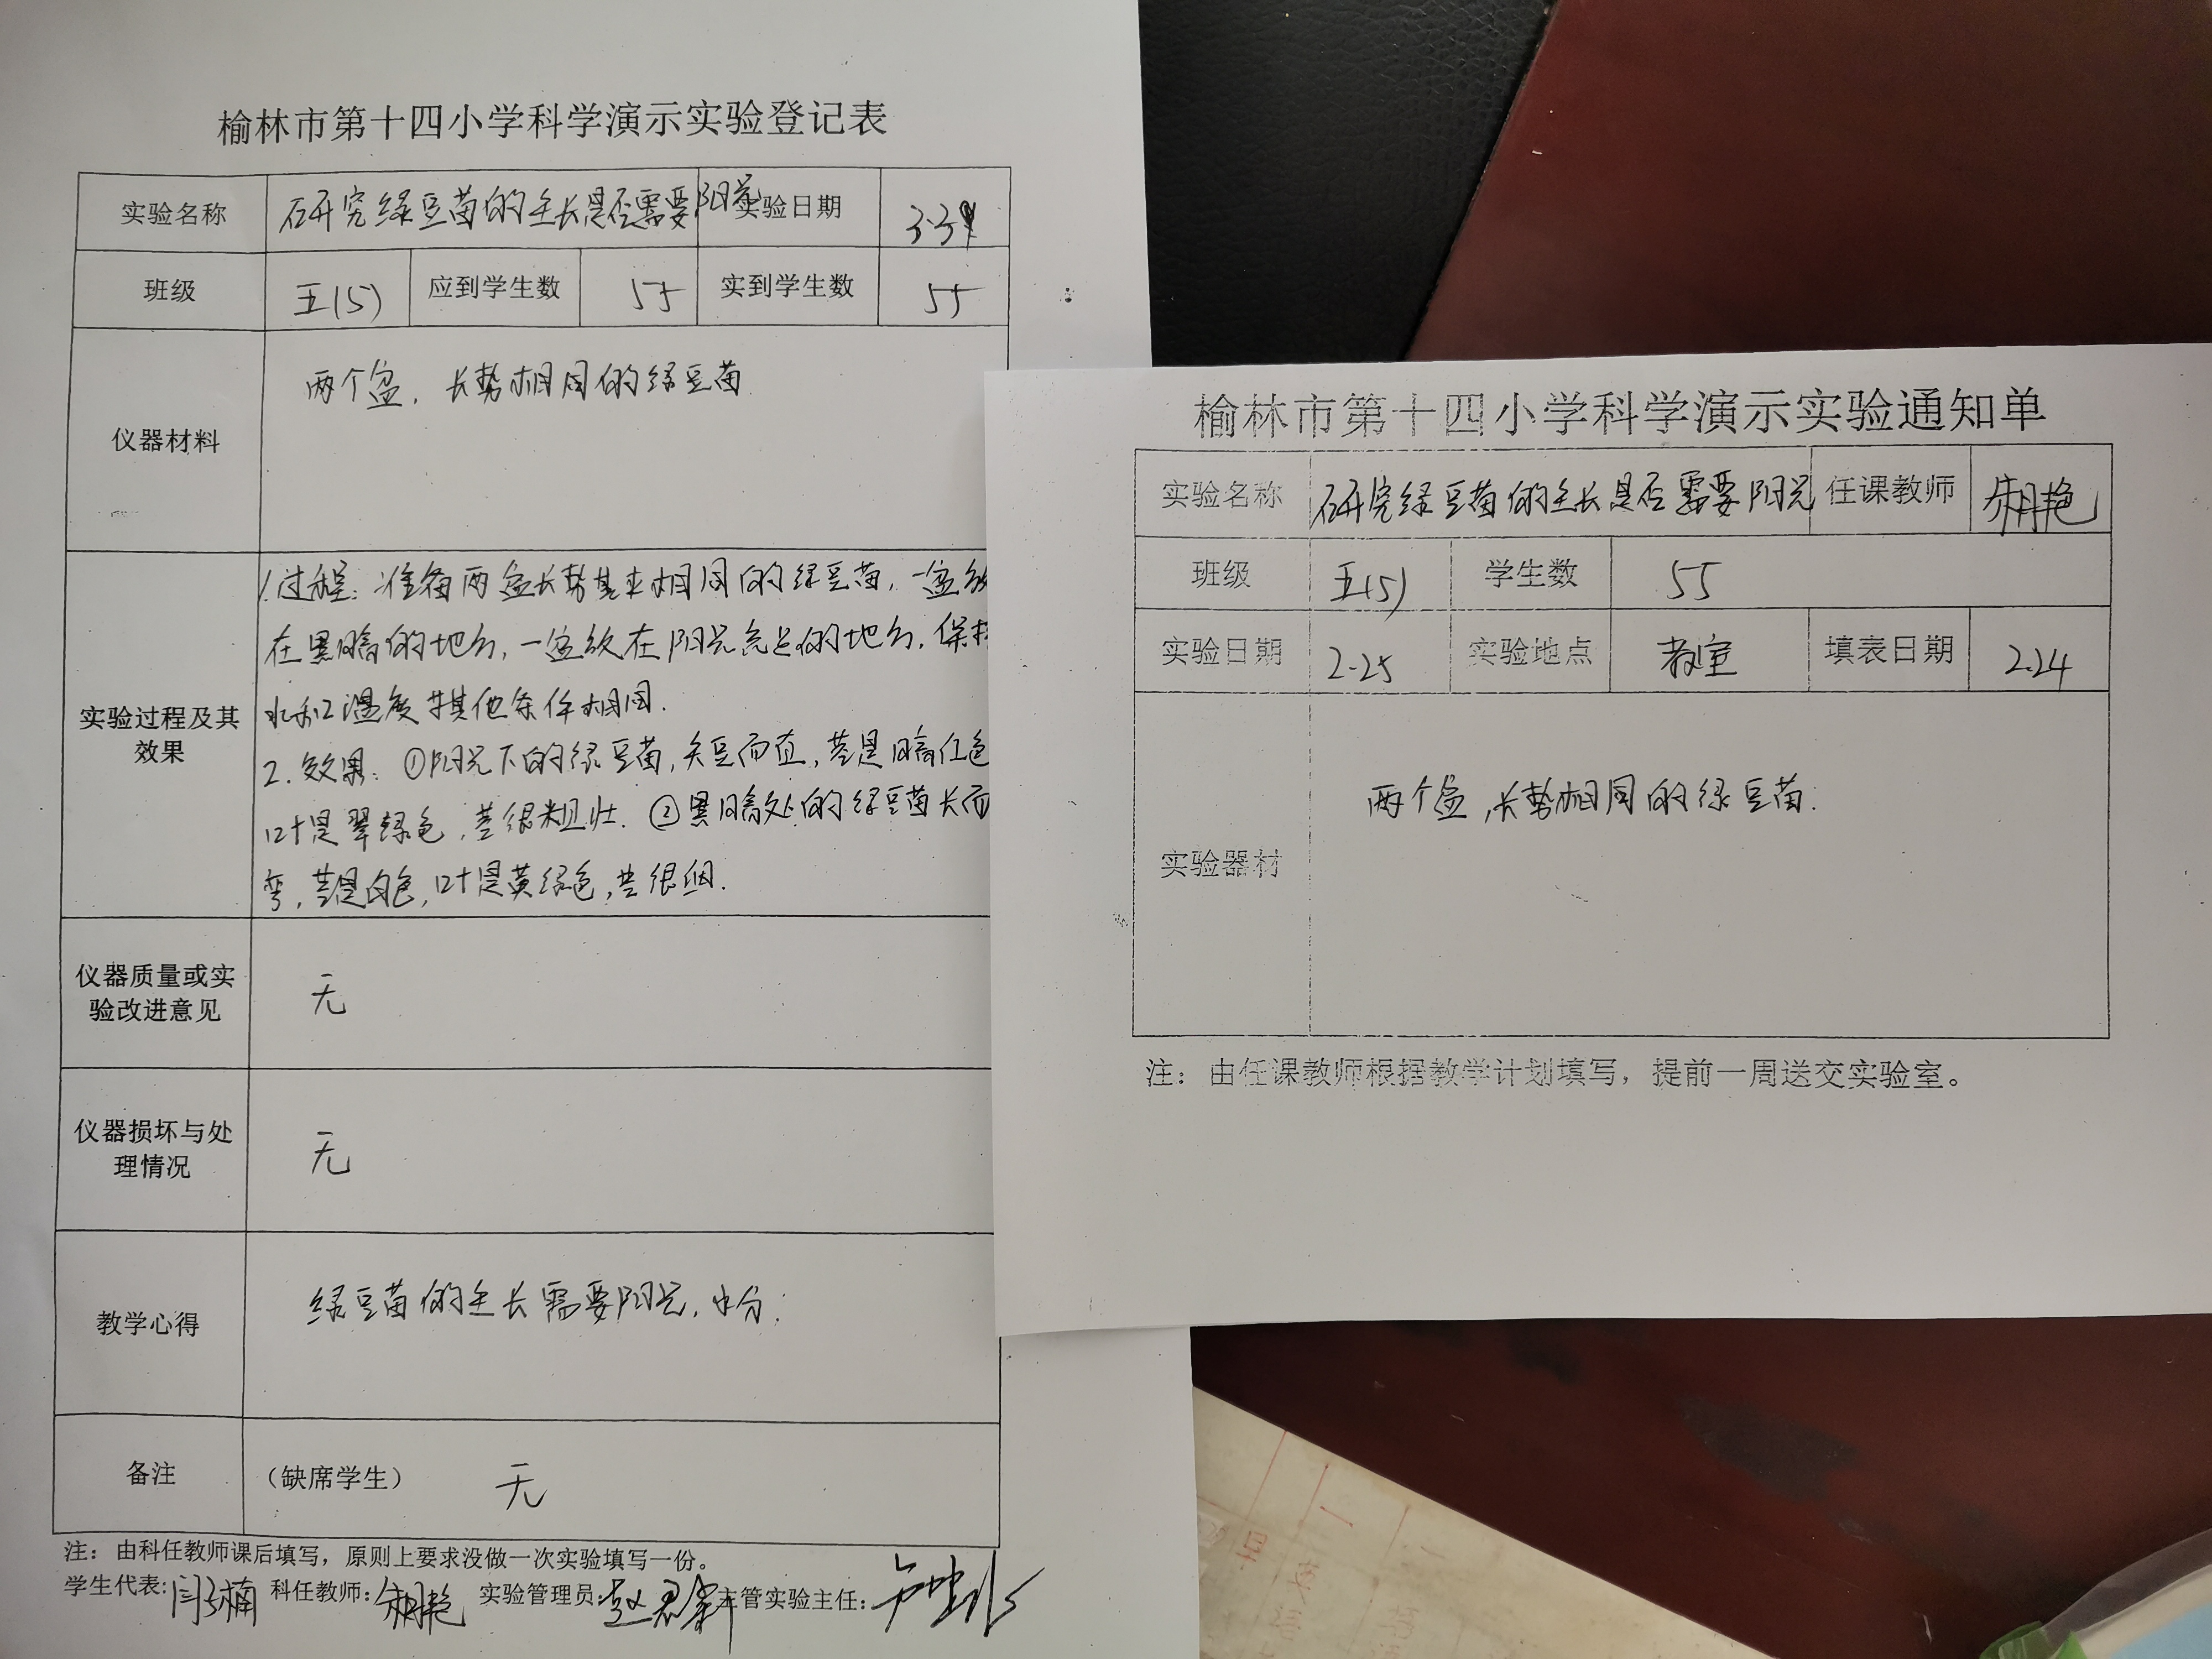 榆林市第十四小学科学演示实验登记表
实验名称 研究绿豆苗的生长是否需要阳光 实验日期 3.3
班级 五(5) 应到学生数 55 实到学生数 55
仪器材料 两个盆，长势相同的绿豆苗.
实验过程及其效果
1.过程：准备两盆长势基本相同的绿豆苗，一盆放
在黑暗的地方，一盆放在阳光充足的地方，保持
水和温度等其他条件相同.
2.效果：①阳光下的绿豆苗，矢豆而直，茎是暗红色
叶是翠绿色，茎很粗壮.②黑暗处的绿豆苗长而
弯，茎是白色，叶是黄绿色，茎很细.
仪器质量或实验改进意见 无
仪器损坏与处理情况 无
教学心得 绿豆苗的生长需要阳光，水分.
备注 （缺席学生） 无
注：由科任教师课后填写，原则上要求没做一次实验填写一份。
学生代表: 科任教师: 实验管理员: 主管实验主任:
榆林市第十四小学科学演示实验通知单
实验名称 研究绿豆苗的生长是否需要阳光 任课教师
班级 五(5) 学生数 55
实验日期 2.25 实验地点 教室 填表日期 2.24
实验器材 两个盆，长势相同的绿豆苗.
注：由任课教师根据教学计划填写，提前一周送交实验室。